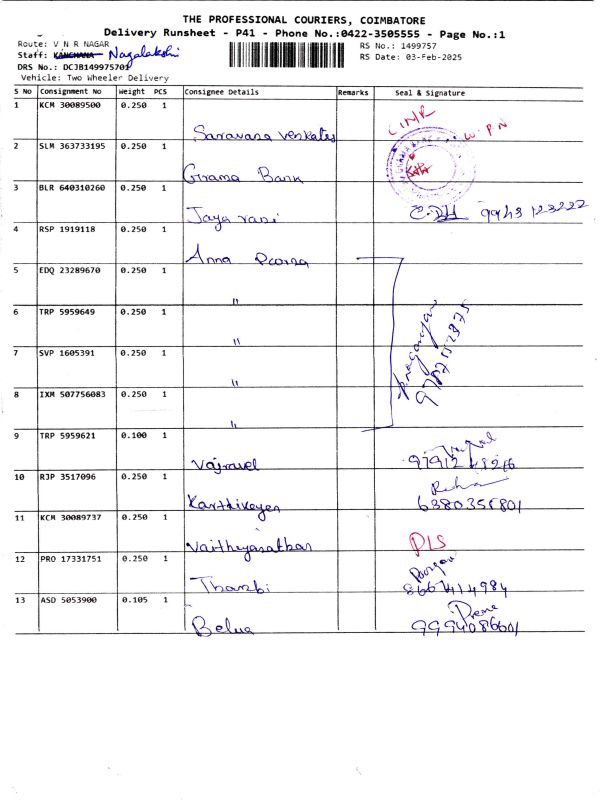 THE PROFESSIONAL COURIERS, COIMBATORE
Delivery Runsheet - P41 - Phone No.:0422-3505555 - Page No.:1
Route: V N R NAGAR
RS No.: 1499757
Staff: KANCHANA Nagalakshi
RS Date: 03-Feb-2025
DRS No.: DCJB149975701
Vehicle: Two Wheeler Delivery
S No Consignment No Weight PCS Consignee Details Remarks Seal & Signature
1 KCM 30089500 0.250 1 Saravana Venkates
2 SLM 363733195 0.250 1 Grama Bank
3 BLR 640310260 0.250 1 Jaya rani 9943123222
4 RSP 1919118 0.250 1 Anna Poorna
5 EDQ 23289670 0.250 1 "
6 TRP 5959649 0.250 1 "
7 SVP 1605391 0.250 1 "
8 IXM 507756083 0.250 1 "
9 TRP 5959621 0.100 1 Vajravel
10 RJP 3517096 0.250 1 Karthikeyen 6380356801
11 KCM 30089737 0.250 1 Vaitheyanathan DLS
12 PRO 17331751 0.250 1 Thambi 8667414984
13 ASD 5053900 0.105 1 Belwa Preme 9994086601